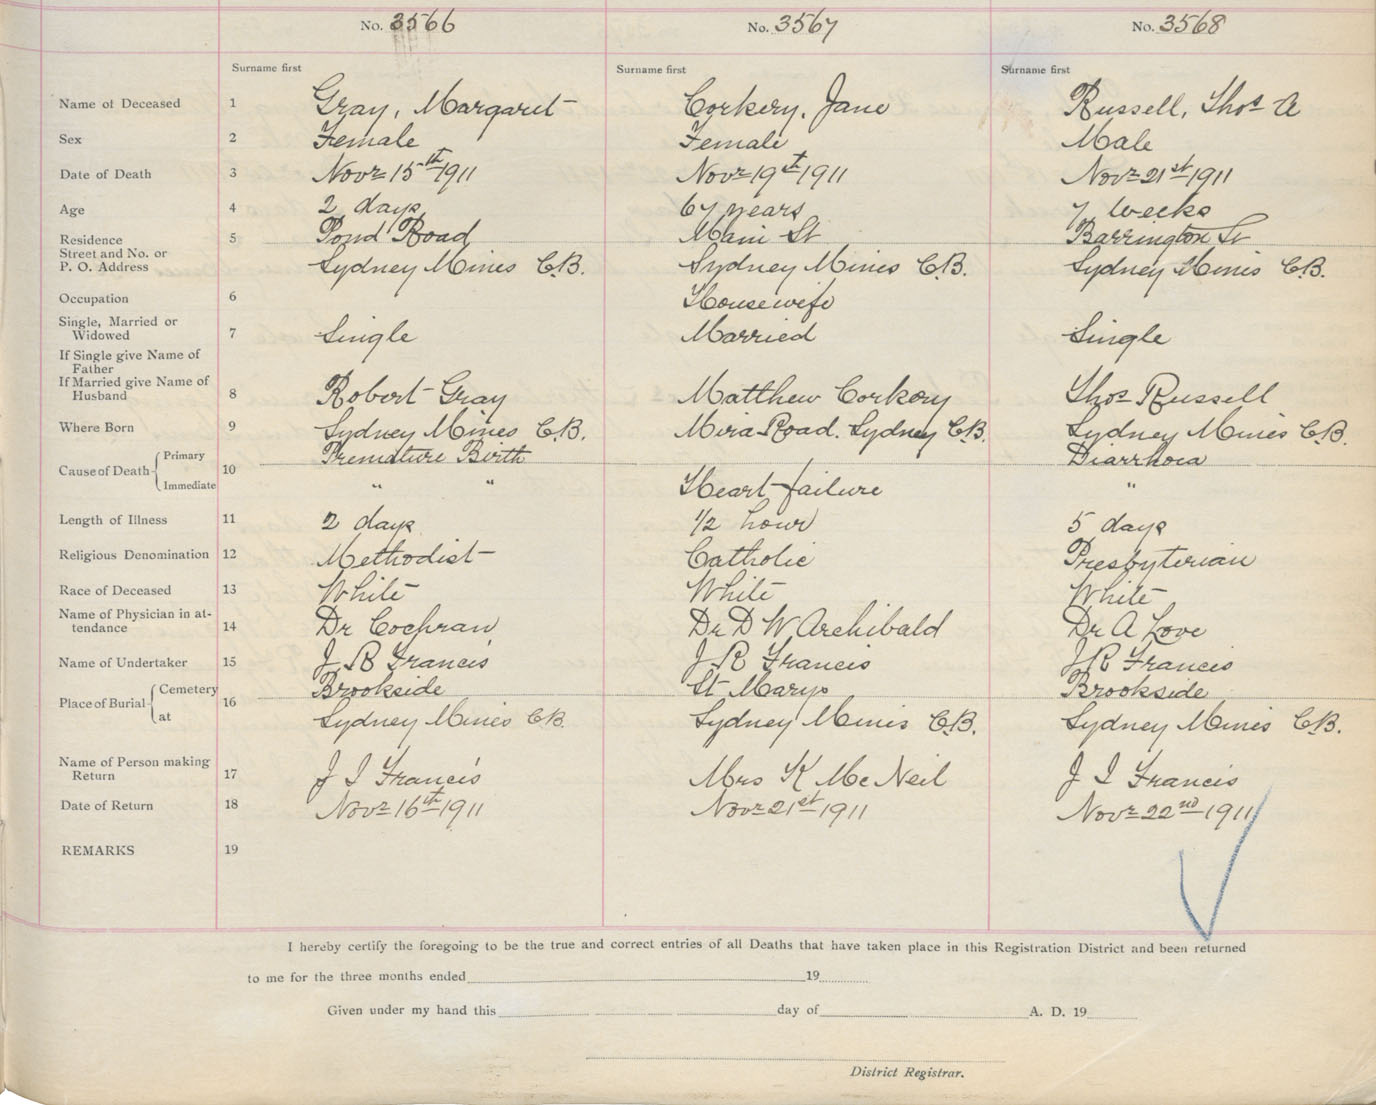 No. 3566 No. 3567 No. 3568
Surname first Surname first Surname first
Name of Deceased 1 Gray, Margaret Corkery, Jane Russell, Thos A
Sex 2 Female Female Male
Date of Death 3 Novr 15th 1911 Novr 19th 1911 Novr 21st 1911
Age 4 2 days 67 years 7 weeks
Residence 5 Pond Road Main St Barrington St
Street and No. or
P. O. Address Sydney Mines C.B. Sydney Mines C.B. Sydney Mines C.B.
Occupation 6 Housewife
Single, Married or
Widowed 7 Single Married Single
If Single give Name of
Father
If Married give Name of
Husband 8 Robert Gray Matthew Corkery Thos Russell
Where Born 9 Sydney Mines C.B. Mira Road. Sydney C.B. Sydney Mines C.B.
Primary Premature Birth Diarrhoea
Cause of Death 10
Immediate " " Heart failure "
Length of Illness 11 2 days 1/2 hour 5 days
Religious Denomination 12 Methodist Catholic Presbyterian
Race of Deceased 13 White White White
Name of Physician in at-
tendance 14 Dr Cochran Dr D W Archibald Dr A Love
Name of Undertaker 15 J R Francis J R Francis J R Francis
Cemetery Brookside St Marys Brookside
Place of Burial 16
at Sydney Mines C.B. Sydney Mines C.B. Sydney Mines C.B.
Name of Person making
Return 17 J I Francis Mrs K McNeil J I Francis
Date of Return 18 Novr 16th 1911 Novr 21st 1911 Novr 22nd 1911
REMARKS 19
I hereby certify the foregoing to be the true and correct entries of all Deaths that have taken place in this Registration District and been returned
to me for the three months ended 19
Given under my hand this day of A. D. 19
District Registrar.